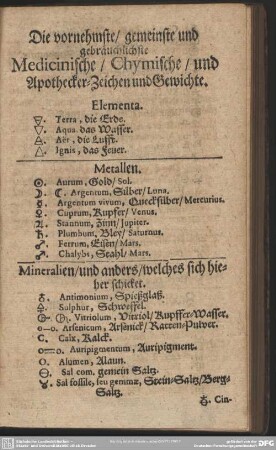 Die vornehmste/ gemeinste und
gebräuchlichste
Medicinische/ Chymische/ und
Apothecker-Zeichen und Gewichte.
Elementa.
🜃. Terra, die Erde.
🜄. Aqua das Wasser.
🜁. Aër, die Lufft.
🜂. Ignis, das Feuer.
Metallen.
☉. Aurum, Gold/ Sol.
☽. ☾. Argentum, Silber/ Luna.
☿. Argentum vivum, Quecksilber/ Mercurius.
♀. Cuprum, Kupfer/ Venus.
♃. Stannum, Zinn/ Jupiter.
♄. Plumbum, Bley/ Saturnus.
♂. Ferrum, Eisen/ Mars.
♂. Chalybs, Stahl/ Mars.
Mineralien/ und anders/ welches sich hie-
her schicket.
♁. Antimonium, Spießglaß.
🜍. Sulphur, Schweffel.
Vitriolum, Vitriol/ Kupffer-Wasser.
o-o. Arsenicum, Arsenick/ Ratten-Pulver.
C. Calx, Kalck.
Auripigmentum, Auripigment.
O. Alumen, Alaun.
🜔. Sal com. gemein Saltz.
Sal fossile, seu gemmæ, Stein-Saltz/ Berg-
Saltz.
Cin-